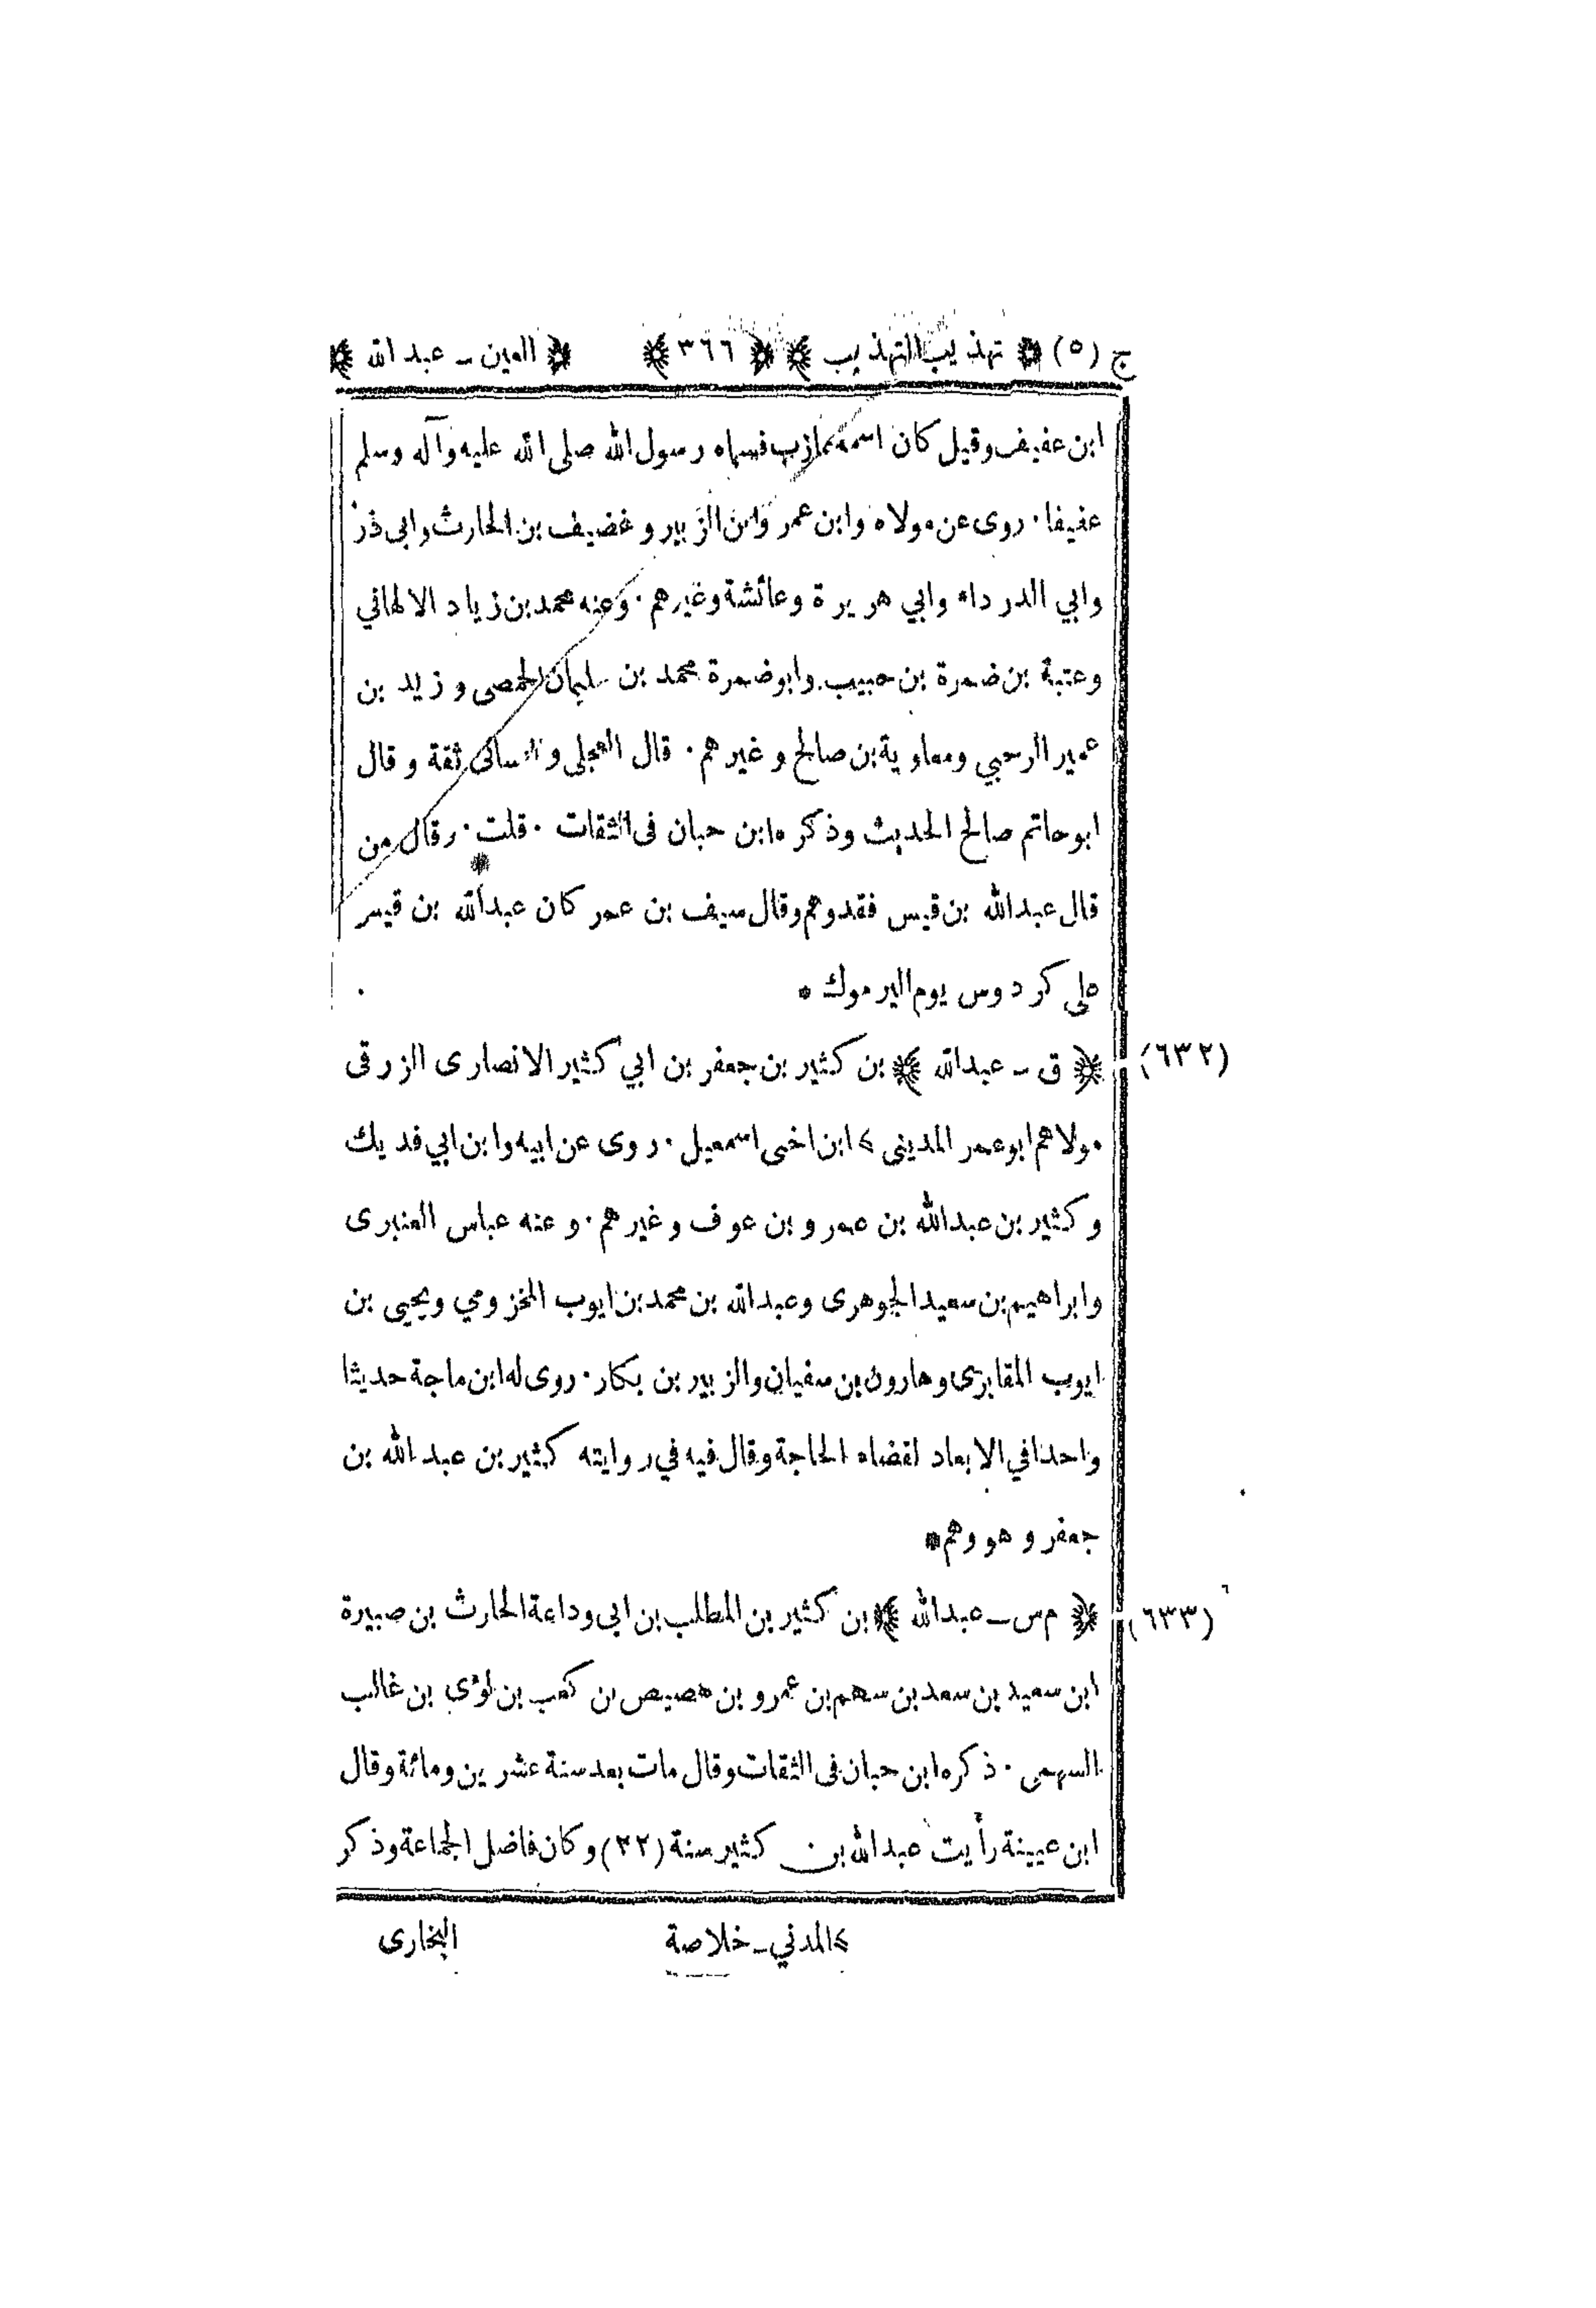 ج (٥) ﴿ تهذيب التهذيب ﴾ ﴿ ٣٦٦ ﴾ ﴿ العين ـ عبد الله ﴾
ابن عفيف وقيل كان اسمه عازب فسماه رسول الله صلى الله عليه وآله وسلم
عفيفا ٠ روى عن مولاه وابن عمر وابن الزبير وغضيف بن الحارث وابى ذر
وابي الدرداء وابي هريرة وعائشة وغيرهم ٠ وعنه محمد بن زياد الالهاني
وعتبة بن ضمرة بن حبيب وابوضمرة محمد بن سليمان الحمصى وزيد بن
عمير الرحبي ومعاوية بن صالح وغيرهم ٠ قال العجلى والنسائى ثقة وقال
ابوحاتم صالح الحديث وذكره ابن حبان فى الثقات ٠ قلت ٠ وقال من
قال عبدالله بن قيس فقد وهم وقال سيف بن عمر كان عبدالله بن قيس
على كردوس يوم اليرموك *
(٦٣٢) ﴿ ق ـ عبدالله ﴾ بن كثير بن جعفر بن ابي كثير الانصارى الزرقى
مولاهم ابوعمر المدينى > ابن اخى اسمعيل ٠ روى عن ابيه وابن ابي فديك
وكثير بن عبدالله بن عمرو بن عوف وغيرهم ٠ وعنه عباس العنبرى
وابراهيم بن سعيد الجوهرى وعبدالله بن محمد بن ايوب المخزومي ويحيى بن
ايوب المقابرى وهارون بن سفيان والزبير بن بكار ٠ روى له ابن ماجة حديثا
واحدا في الابعاد لقضاء الحاجة وقال فيه في روايته كثير بن عبد الله بن
جعفر وهو وهم *
(٦٣٣) ﴿ م س ـ عبدالله ﴾ بن كثير بن المطلب بن ابى وداعة الحارث بن صبيرة
ابن سعيد بن سعد بن سهم بن عمرو بن هصيص بن كعب بن لؤى بن غالب
السهمى ٠ ذكره ابن حبان فى الثقات وقال مات بعد سنة عشرين ومائة وقال
ابن عيينة رأيت عبدالله بن كثير سنة (٢٢) وكان فاضل الجماعة وذكر
> المدني ـ خلاصة
البخارى